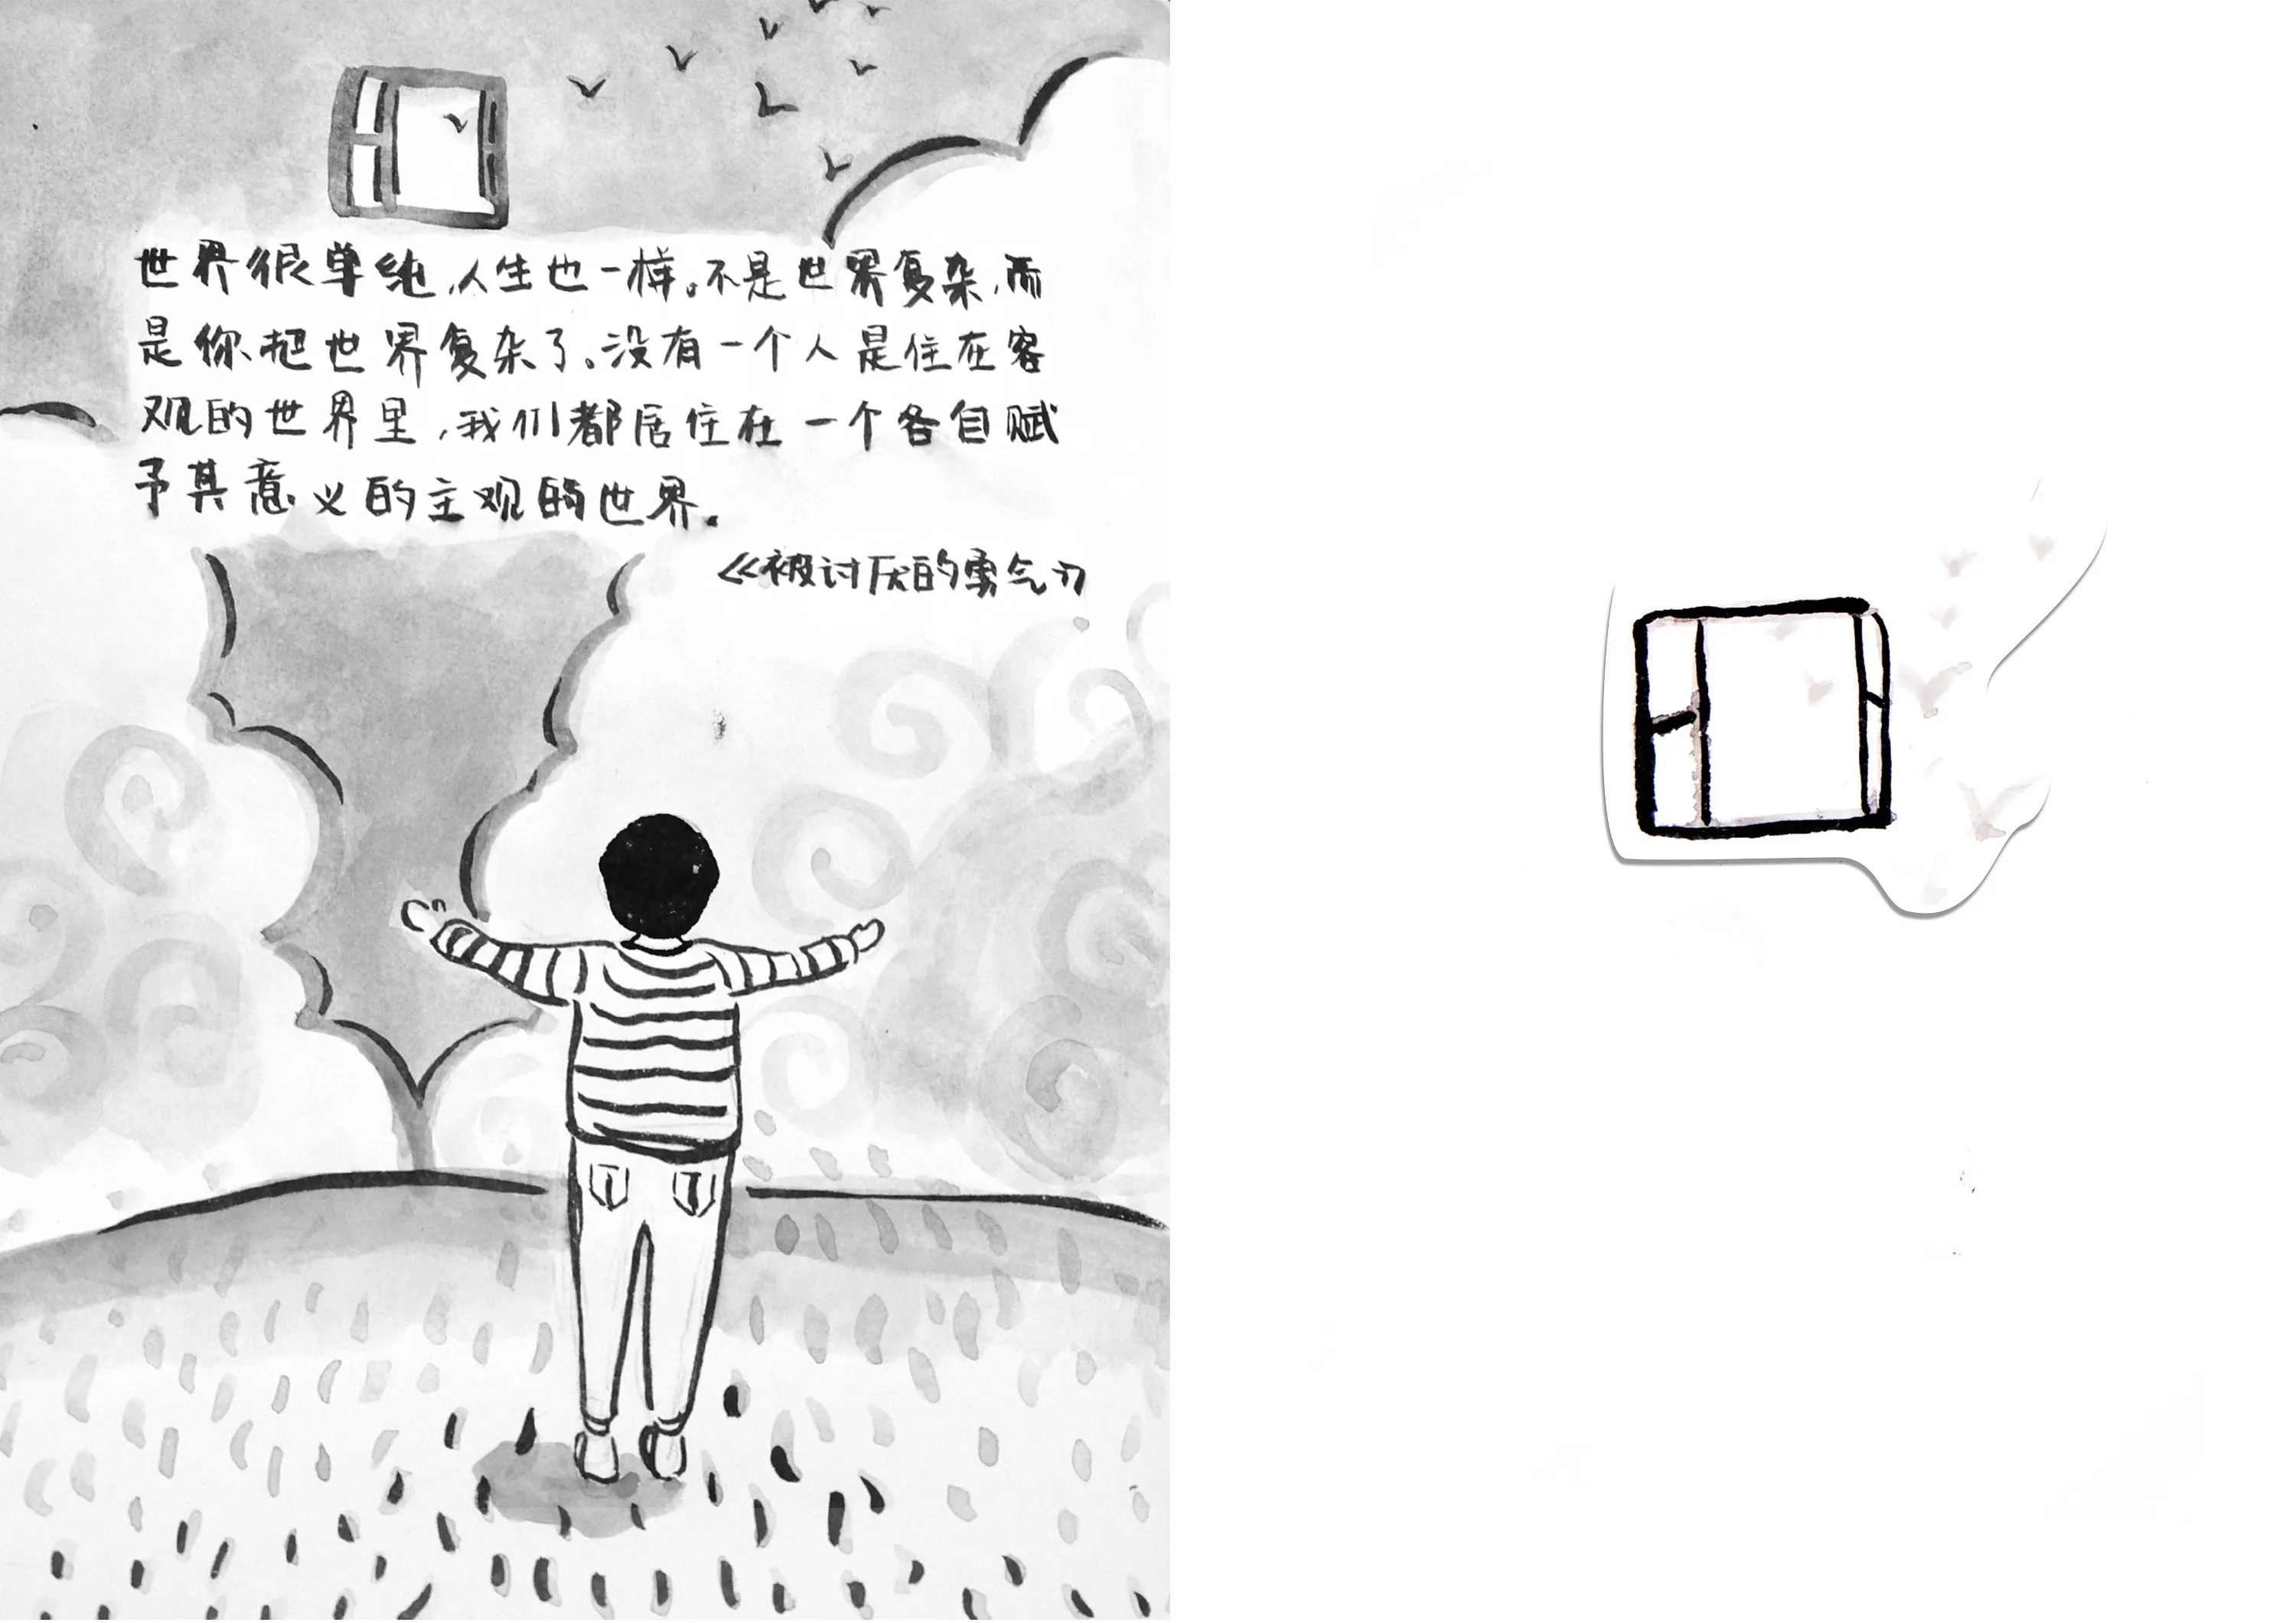 世界很单纯,人生也一样。不是世界复杂,而
是你把世界复杂了。没有一个人是住在客
观的世界里,我们都居住在一个各自赋
予其意义的主观的世界。
《被讨厌的勇气》